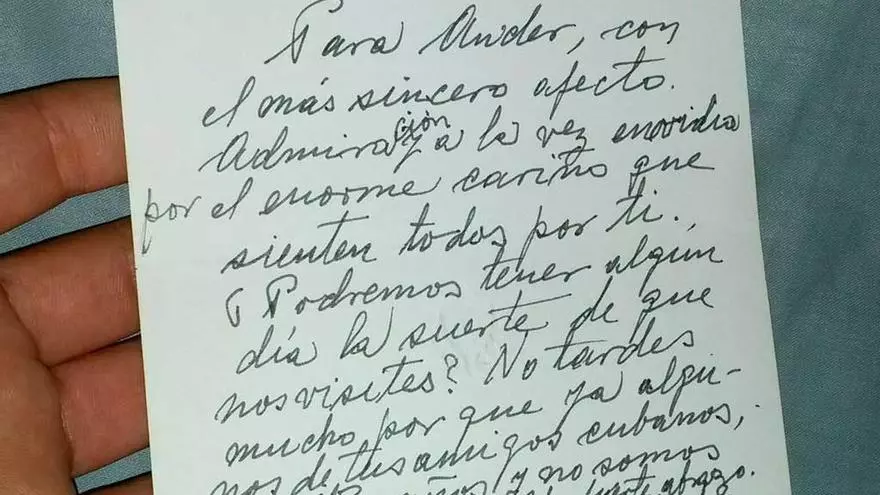 Para Ander, con
el más sincero afecto.
Admiración y a la vez envidia
por el enorme cariño que
sienten todos por ti.
¿Podremos tener algún
día la suerte de que
nos visites? No tardes
mucho por que ya algu-
nos de tus amigos cubanos,
años y no somos
fuerte abrazo.